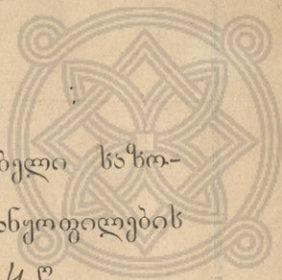 ბელი საზო-
ანყოფილების